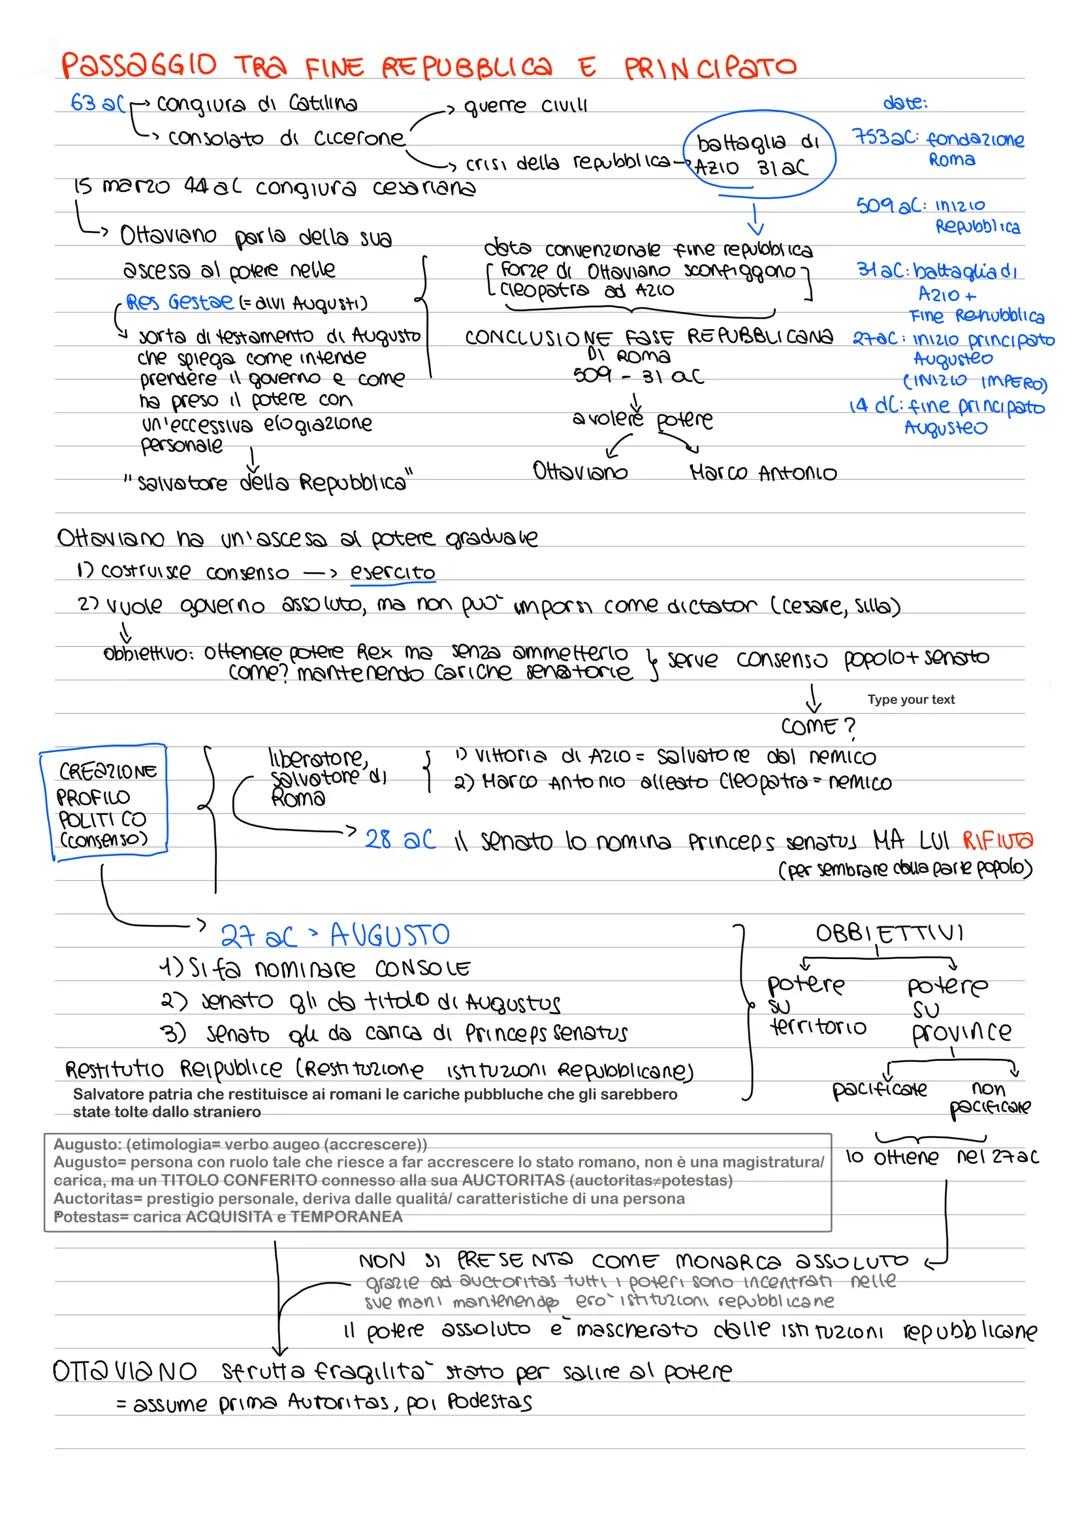 PASSAGGIO TRA FINE REPUBBLICA E PRINCIPATO
63 aC → congiura di Catilina
→ consolato di Cicerone
→ guerre civili
→ crisi della repubblica →
battaglia di
Azio 31 aC
15 marzo 44 aC congiura cesariana
→ Ottaviano parla della sua
ascesa al potere nelle
Res Gestae (= divi Augusti)
sorta di testamento di Augusto
che spiega come intende
prendere il governo e come
ha preso il potere con
un'eccessiva elogiazione
personale
"salvatore della Repubblica"
data convenzionale fine repubblica
[Forze di Ottaviano sconfiggono
Cleopatra ad Azio]
CONCLUSIONE FASE REPUBBLICANA
DI ROMA
509 - 31 aC
a volere potere
Ottaviano
Marco Antonio
date:
753 aC: fondazione
Roma
509 aC: inizio
Repubblica
31 aC: battaglia di
Azio +
Fine Repubblica
27 aC: inizio principato
Augusteo
(INIZIO IMPERO)
14 dC: fine principato
Augusteo
Ottaviano ha un'ascesa al potere graduale
1) costruisce consenso —> esercito
2) vuole governo assoluto, ma non può imporsi come dictator (cesare, silla)
obbiettivo: ottenere potere Rex ma senza ammetterlo
come? mantenendo cariche senatorie
} serve consenso popolo + senato
Type your text
COME?
CREAZIONE
PROFILO
POLITICO
(consenso)
liberatore,
salvatore di
Roma
1) Vittoria di Azio = salvatore dal nemico
2) Marco Antonio alleato Cleopatra = nemico
> 28 aC il senato lo nomina Princeps senatus MA LUI RIFIUTA
(per sembrare dalla parte popolo)
27 aC > AUGUSTO
1) Si fa nominare CONSOLE
2) senato gli da titolo di AUGUSTUS
3) senato gli da carica di Princeps Senatus
Restitutio Reipublice (Restituzione istituzioni Repubblicane)
Salvatore patria che restituisce ai romani le cariche pubbluche che gli sarebbero
state tolte dallo straniero
OBBIETTIVI
potere
su
territorio
potere
su
province
pacificate
non
pacificate
lo ottiene nel 27 aC
Augusto: (etimologia= verbo augeo (accrescere))
Augusto= persona con ruolo tale che riesce a far accrescere lo stato romano, non è una magistratura/
carica, ma un TITOLO CONFERITO connesso alla sua AUCTORITAS (auctoritas≠potestas)
Auctoritas= prestigio personale, deriva dalle qualitá/ caratteristiche di una persona
Potestas= carica ACQUISITA e TEMPORANEA
NON SI PRESENTA COME MONARCA ASSOLUTO
grazie ad auctoritas tutti i poteri sono incentrati nelle
sue mani mantenendo però istituzioni repubblicane
il potere assoluto è mascherato dalle istituzioni repubblicane
OTTAVIANO sfrutta fragilità stato per salire al potere
= assume prima Autoritas, poi Podestas